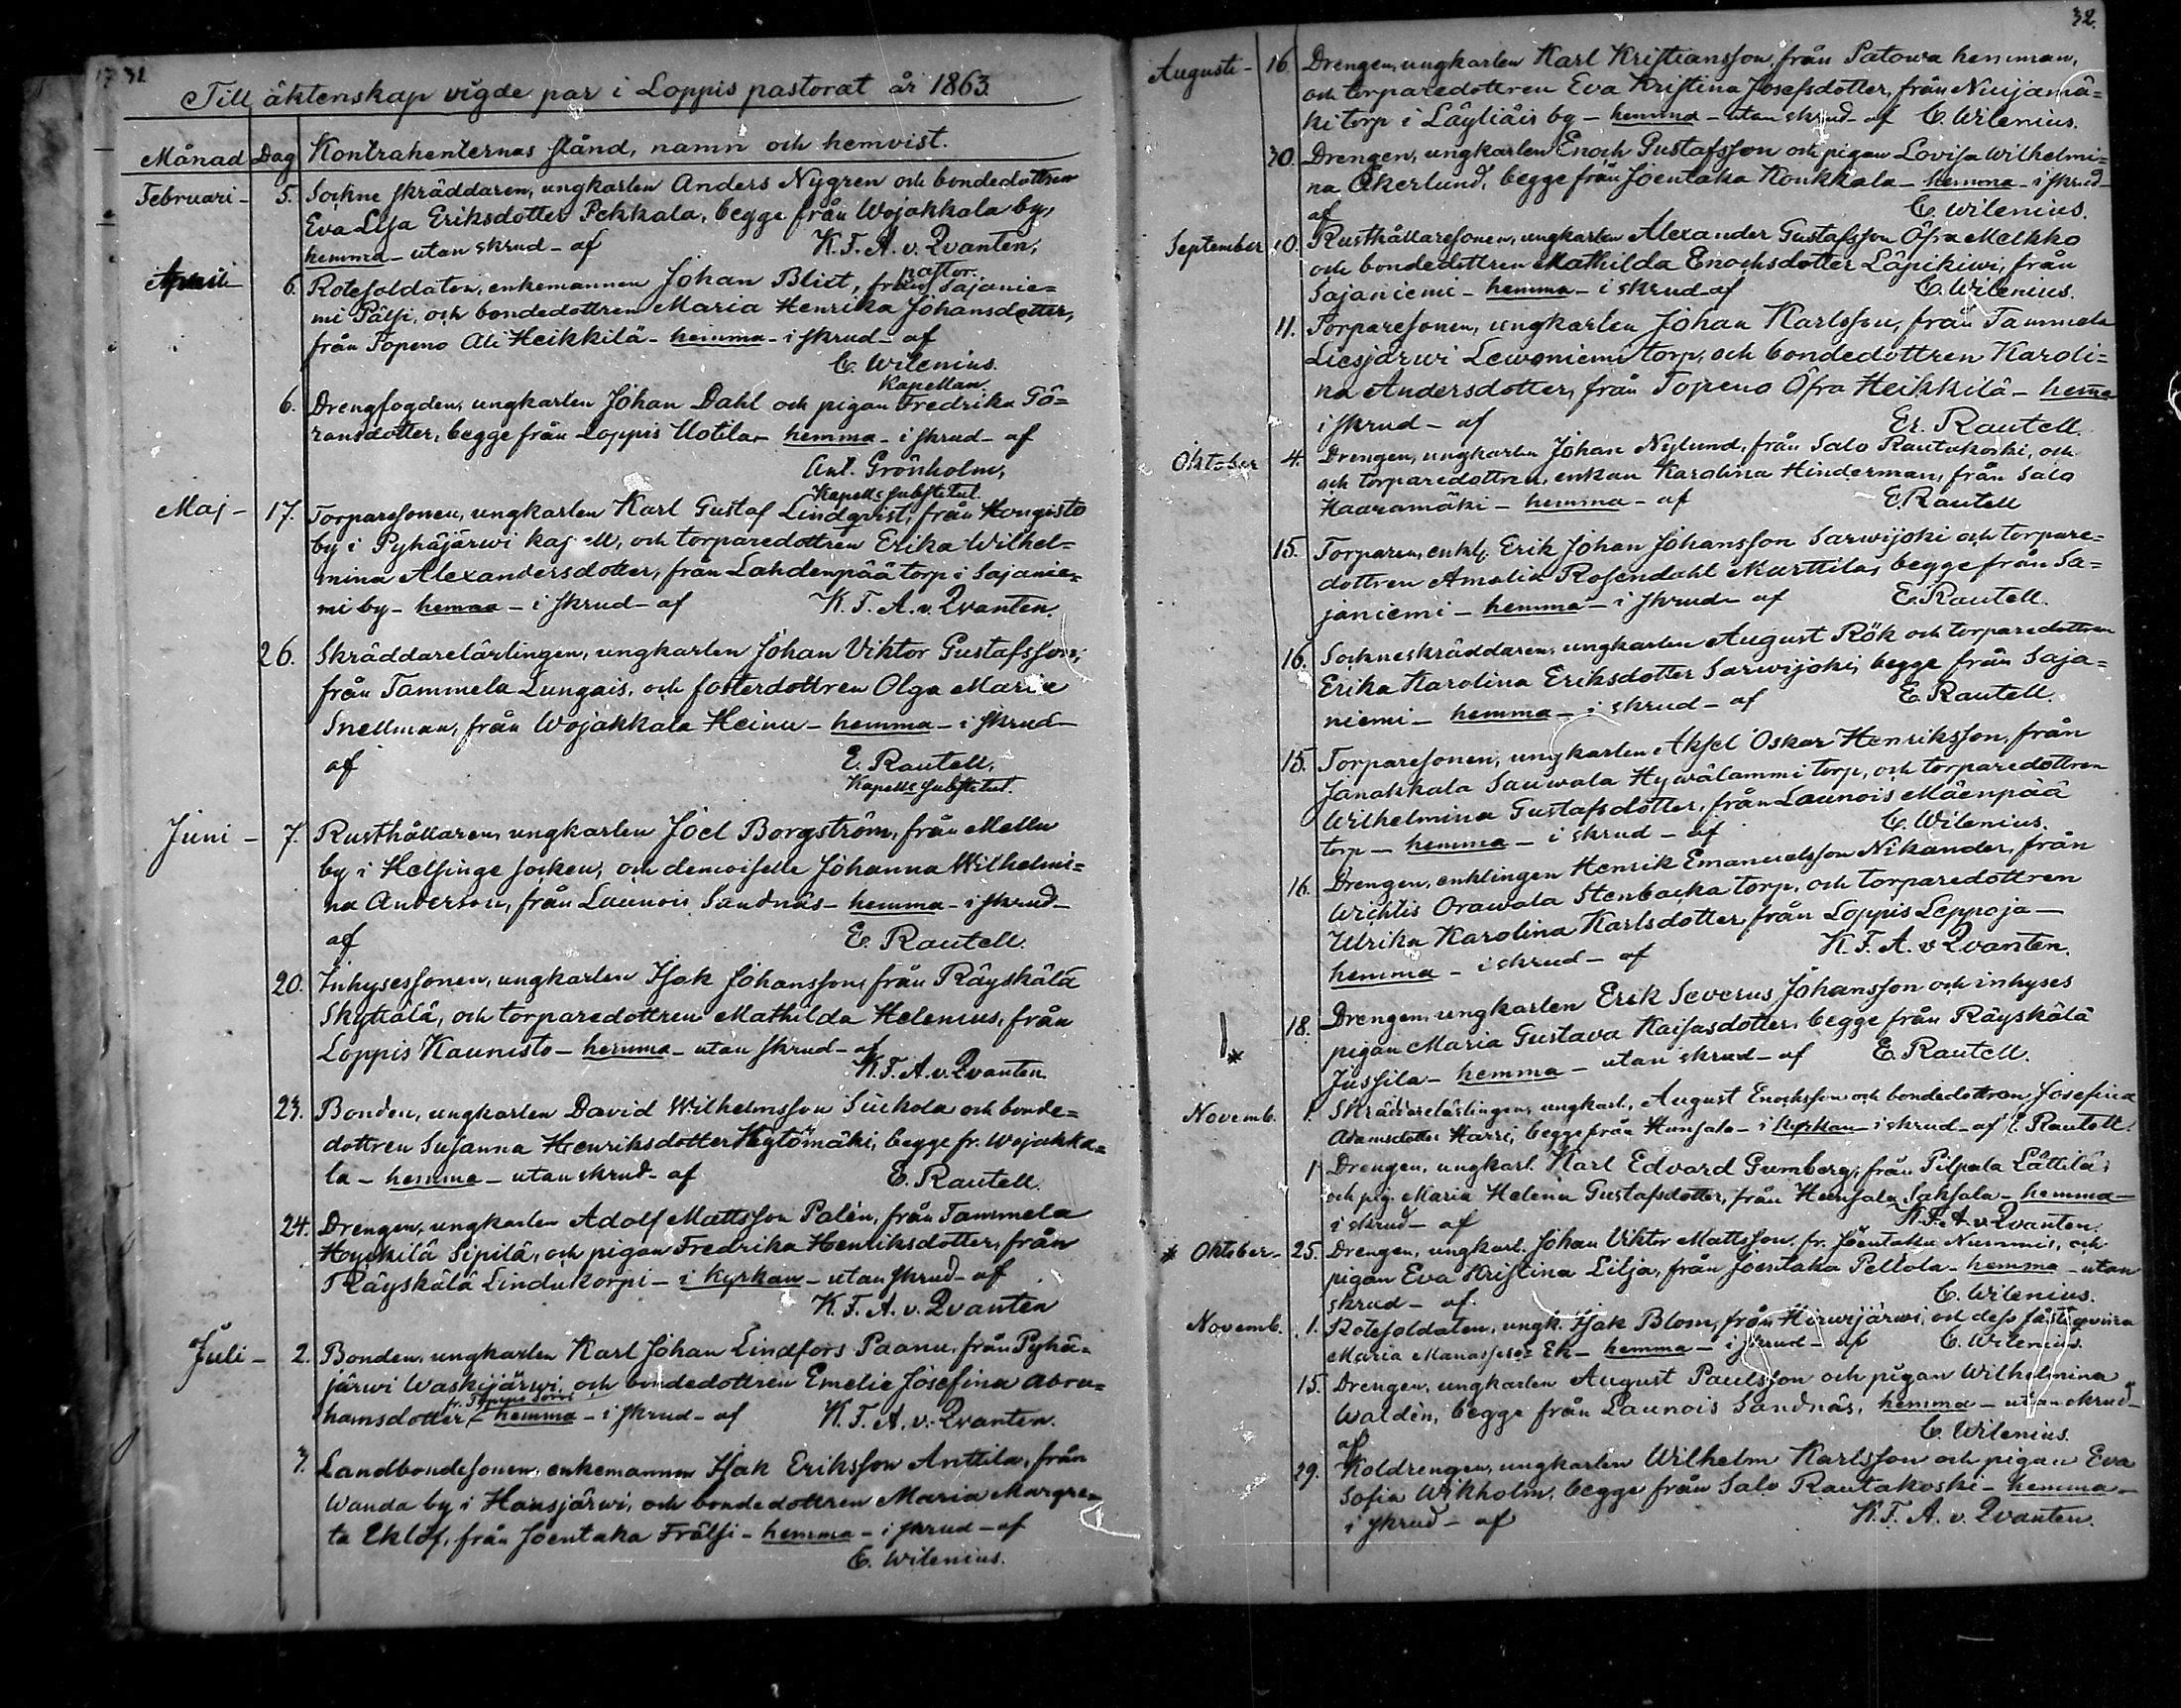 31
Till äktenskap vigde par i Loppis pastorat år 1863.
Månad Dag Kontrahenternas stånd, namn och hemvist.
Februari - 5. Sockne skräddaren, ungkarlen Anders Nygren och bondedottren
Eva Lisa Eriksdotter Pekkala, begge från Wojakkala by,
hemma - utan skrud - af K. F. A. v. Qvanten,
pastor.
April - 6. Rotesoldaten, enkemannen Johan Blixt, från Sajanie=
mi Pälsi, och bondedottren Maria Henrika Johansdotter,
från Topeno Ali Heikkilä - hemma - i skrud - af
C. Wilenius.
Kapellan.
6. Drengfogden, ungkarlen Johan Dahl och pigan Fredrika Gö=
ransdotter, begge från Loppis Uotila - hemma - i skrud - af
Ant. Grönholm,
Kapells substitut.
Maj - 17. Torparesonen, ungkarlen Karl Gustaf Lindqvist, från Hongisto
by i Pyhäjärwi kapell, och torparedottren Erika Wilhel=
mina Alexandersdotter, från Lahdenpää torp i Sajanie=
mi by - hemma - i skrud - af K. F. A. v. Qvanten.
26. Skräddarelärlingen, ungkarlen Johan Viktor Gustafsson,
från Tammela Lungais, och fosterdottren Olga Maria
Snellman, från Wojakkala Heinu - hemma - i skrud -
af E. Rautell,
Kapells substitut.
Juni - 7. Rusthållaren, ungkarlen Joel Borgström, från Mellu
by i Helsinge socken, och demoiselle Johanna Wilhelmi=
na Anderson, från Launois Sandnäs - hemma - i skrud -
af E. Rautell.
20. Inhysessonen, ungkarlen Isak Johansson, från Räyskälä
Skyttälä, och torparedottren Mathilda Helenius, från
Loppis Kaunisto - hemma - utan skrud - af
K. F. A. v. Qvanten.
23. Bonden, ungkarlen David Wilhelmsson Suckola och bonde=
dottren Susanna Henriksdotter Hytömäki, begge fr. Wojakka=
la - hemma - utan skrud - af E. Rautell.
24. Drengen, ungkarlen Adolf Mattsson Palén, från Tammela
Hoyskilä Sipilä, och pigan Fredrika Henriksdotter, från
Räyskälä Lindukorpi - i kyrkan - utan skrud - af
K. F. A. v. Qvanten
Juli - 2. Bonden, ungkarlen Karl Johan Lindfors Paanu, från Pyhä=
järwi Waskijärwi, och bondedottren Emelie Josefina Abra=
hamsdotter, - hemma - i skrud - af K. F. A. v. Qvanten.
3. Landbondesonen, enkemannen Isak Eriksson Anttila, från
Wanda by i Hausjärwi, och bondedottren Maria Margre=
ta Eklöf, från Joentaka Frälsi - hemma - i skrud - af
C. Wilenius.
32.
Augusti - 16. Drengen, ungkarlen Karl Kristiansson, från Patowa hemman,
och torparedottren Eva Kristina Josefsdotter, från Niujamä=
ki torp i Läyliäis by - hemma - utan skrud - af C. Wilenius.
30. Drengen, ungkarlen Enoch Gustafsson och pigan Lovisa Wilhelmi=
na Åkerlund, begge från Joentaka Konkkala - hemma - i skrud -
af C. Wilenius.
September 10. Rusthållaresonen, ungkarlen Alexander Gustafsson Öfra Melkko
och bondedottren Mathilda Enochsdotter Läpikiwi, från
Sajaniemi - hemma - i skrud - af C. Wilenius.
11. Torparesonen, ungkarlen Johan Karlsson, från Tammela
Liesjärwi Lewoniemi torp, och bondedottren Karoli=
na Andersdotter, från Topeno Öfra Heikkilä - hemma
i skrud - af Er. Rautell.
Oktober 4. Drengen, ungkarlen Johan Nylund, från Salo Rautakoski, och
och torparedottren, enkan Karolina Hinderman, från Salo
Haaramäki - hemma - af E. Rautell
15. Torparen, enkl. Erik Johan Johansson Sarwijoki och torpare=
dottren Amalia Rosendahl Murttila, begge från Sa=
janiemi - hemma - i skrud - af E. Rautell.
16. Sockneskräddaren, ungkarlen August Rök och torparedottren
Erika Karolina Eriksdotter Sarwijoki, begge från Saja=
niemi - hemma - i skrud - af E. Rautell.
15. Torparesonen, ungkarlen Aksel Oskar Henriksson, från
Janakkala Sauwala Hywälammi torp, och torparedottren
Wilhelmina Gustafsdotter, från Launois Mäenpää
torp - hemma - i skrud - af C. Wilenius.
16. Drengen, enklingen Henrik Emanuelsson Nikander, från
Wichtis Orawala Stenbacka torp, och torparedottren
Ulrika Karolina Karlsdotter, från Loppis Leppoja -
hemma - i skrud - af K. F. A. v Qvanten.
18. Drengen, ungkarlen Erik Severus Johansson och inhyses
pigan Maria Gustava Kaisasdotter, begge från Räyskälä
Jussila - hemma - utan skrud - af E. Rautell.
Novemb. 1. Skräddarelärlingen, ungkarl. August Enochsson och bondedottren Josefina
Adamsdotter Harri, begge från Hunsala - i kyrkan - i skrud - af E. Rautell.
1 Drengen, ungkarl. Karl Edvard Gumberg, från Pilpala Lättilä,
och pig. Maria Helena Gustafsdotter, från Hunsala Saksala - hemma -
i skrud - af K. F. A. v. Qvanten.
* Oktober - 25. Drengen, ungkarl. Johan Viktor Mattsson, fr. Joentaka Nummis, och
pigan Eva Kristina Lilja, från Joentaka Pellola - hemma - utan
skrud - af C. Wilenius.
Novemb. 1. Rotesoldaten, ungk. Isak Blom, från Hirwijärwi, och dess fästeqvinna
Maria Manasses: Ek - hemma - i skrud - af C. Wilenius.
15. Drengen, ungkarlen August Paulsson och pigan Wilhelmina
Waldén, begge från Launois Sandnäs, hemma - utan skrud -
af C. Wilenius.
29. Koldrengen, ungkarlen Wilhelm Karlsson och pigan Eva
Sofia Wikholm, begge från Salo Rautakoski - hemma -
i skrud - af K. F. A. v. Qvanten.